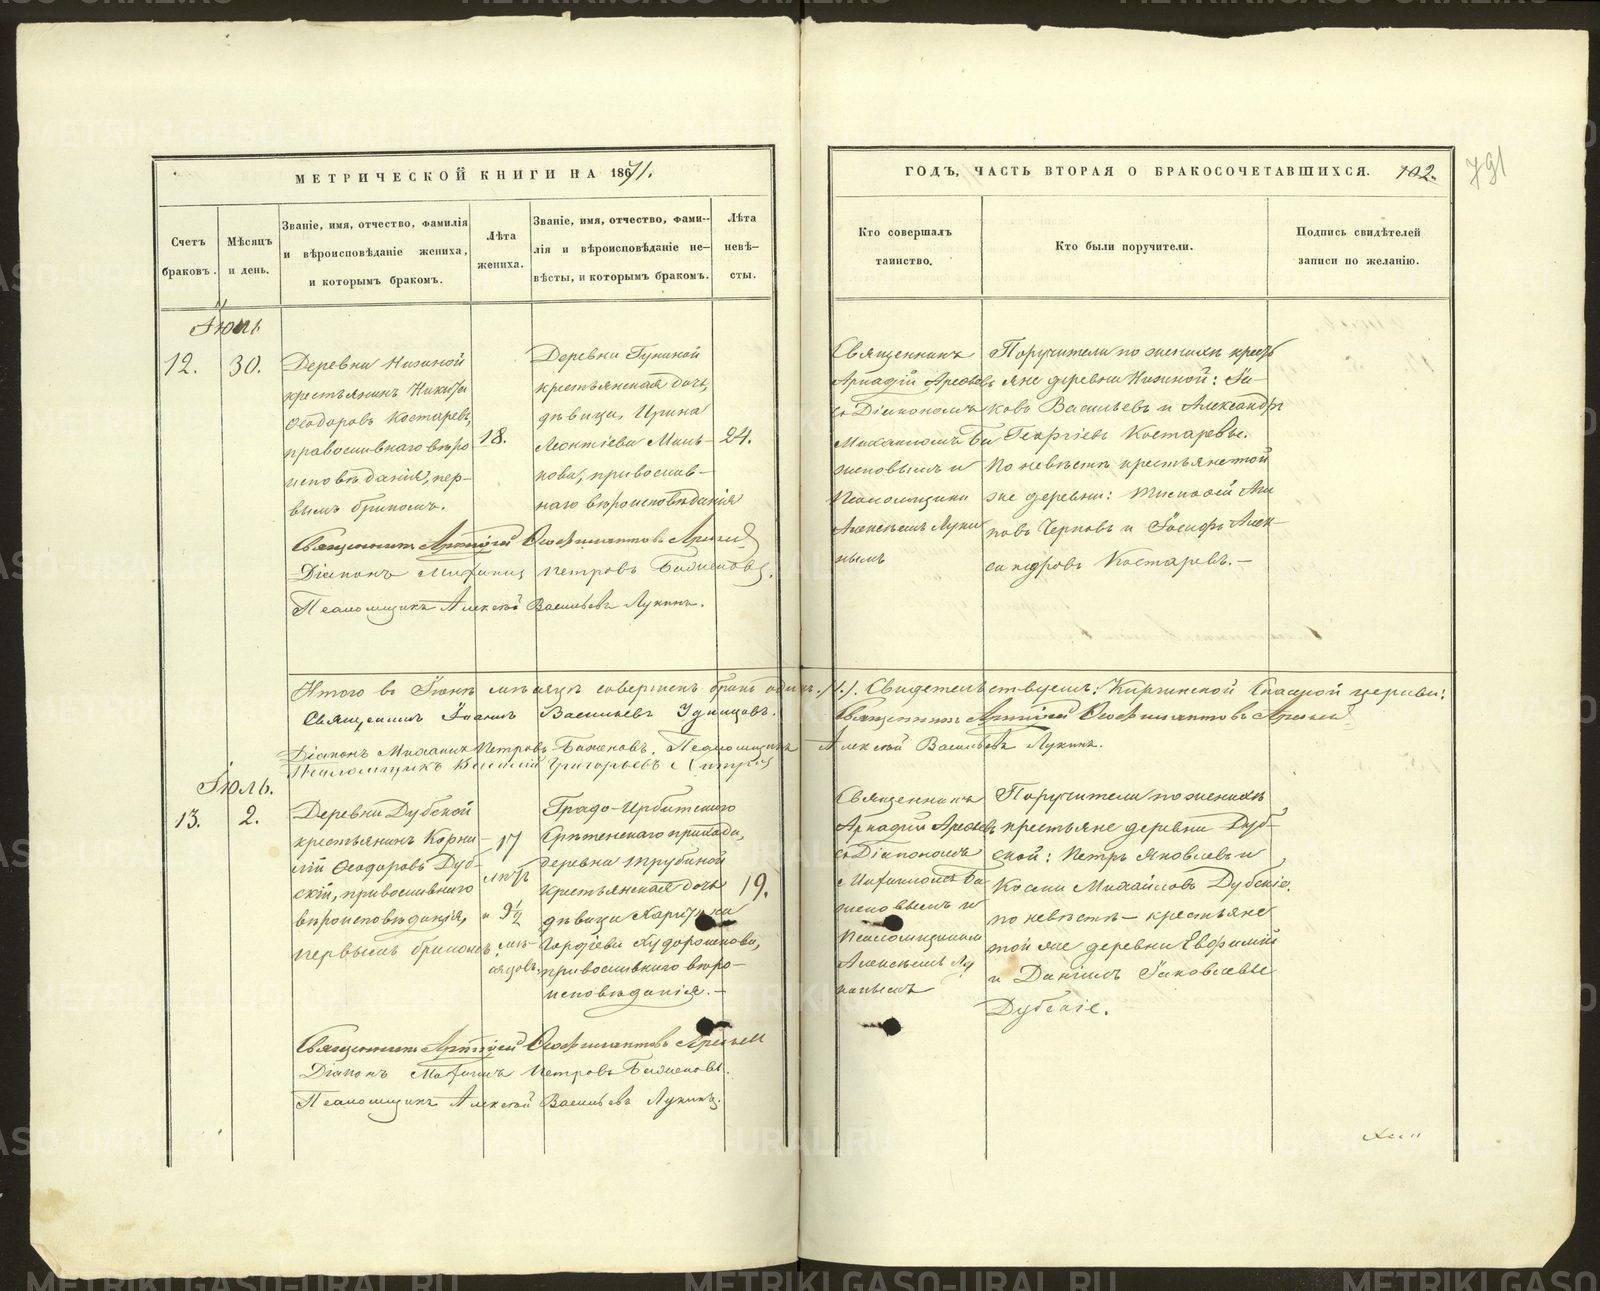 МЕТРИЧЕСКОЙ КНИГИ НА 1871.
Счетъ
браковъ.
Мѣсяцъ
и день.
Званіе, имя, отчество, фамилія
и вѣроисповѣданіе жениха,
и которымъ бракомъ.
Лѣта
жениха.
Званіе, имя, отчество, фами-
лія и вѣроисповѣданіе не-
вѣсты, и которымъ бракомъ.
Лѣта
невѣ-
сты.
Іюнь
12.
30.
Деревни Низиной
крестьянинъ Никита
Ѳеодоровъ Костаревъ,
православнаго вѣро
исповѣданія, пер-
вымъ бракомъ.
18.
Деревни
крестьянская дочь,
дѣвица, Ирина
Леонтіева Мань-
кова, православ-
наго вѣроисповѣданія
24.
Священникъ Аркадій Ѳеофилактовъ
Діаконъ Михаилъ Петровъ Баженовъ.
Псаломщикъ Алексѣй Васильевъ Лукинъ.
Итого въ Іюнѣ мѣсяцѣ совершенъ бракъ одинъ.
Священникъ Іоаннъ Васильевъ Удинцовъ.
Діаконъ Михаилъ Петровъ Баженовъ. Псаломщикъ
Псаломщикъ Василій Григорьевъ
Іюль.
13.
2.
Деревни Дубской
крестьянинъ Корни
лій Ѳеодоровъ Дуб-
скій, православнаго
вѣроисповѣданія,
первымъ бракомъ
17
лѣтъ
и 9½
мѣ-
сяцовъ.
Градо-Ирбитскаго
Срѣтенскаго прихода,
деревни Трубиной
крестьянская дочь
дѣвица Харитина
Гордіева Худорошкова,
православнаго вѣро-
исповѣданія.-
19.
Священникъ Аркадій Ѳеофилактовъ
Діаконъ Михаилъ Петровъ Баженовъ.
Псаломщикъ Алексѣй Васильевъ Лукинъ.
ГОДЪ, ЧАСТЬ ВТОРАЯ О БРАКОСОЧЕТАВШИХСЯ.
102.
791
Кто совершалъ
таинство.
Кто были поручители.
Подпись свидѣтелей
записи по желанію.
Священникъ
Аркадій
съ Діакономъ
Михаиломъ Ба
женовымъ и
Псаломщикомъ
Алексѣемъ Луки
нымъ
Поручители по женихѣ кресть
яне деревни Низиной: Іа-
ковъ Васильевъ и Александръ
Георгіевъ Костаревы.
по невѣстѣ крестьяне той
же деревни:
Черновъ и Іосифъ Алек-
сандровъ Костаревъ.-
/1./. Свидетельствуемъ: Киргинской Спасской церкви:
Священникъ Аркадій Ѳеофилактовъ
Алексѣй Васильевъ Лукинъ.
Священникъ
Аркадій
съ Діакономъ
Михаиломъ Ба
женовымъ и
Псаломщикомъ
Алексѣемъ Лу
кинымъ
Поручители по женихѣ
крестьяне деревни Дуб-
ской: Петръ Яковлевъ и
Косьма Михайловъ Дубскіе.
по невѣстѣ - крестьяне
той же деревни Евфимій
и Даніилъ Іаковлевы
Дубскіе.
METRIKI.GASO-URAL.RU